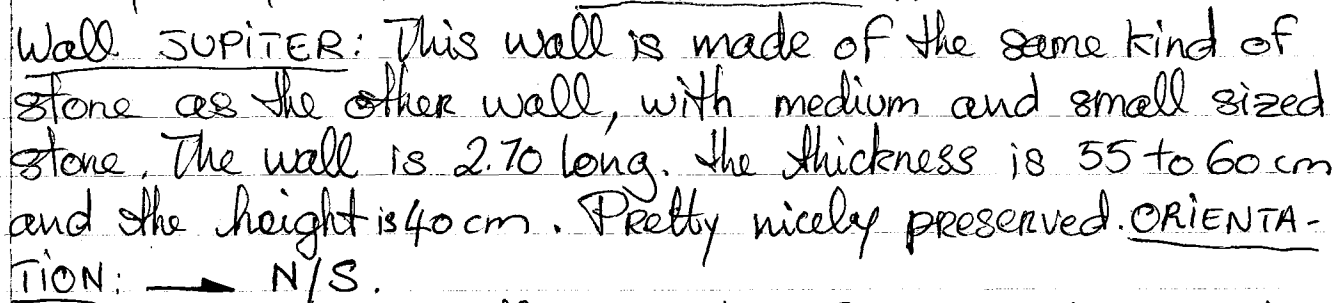 Wall JUPITER: This wall is made of the same kind of
stone as the other wall, with medium and small sized
stone. The wall is 2.70 long. the thickness is 55 to 60 cm
and the height is 40 cm. Pretty nicely preserved. ORIENTA-
TION: → N/S.